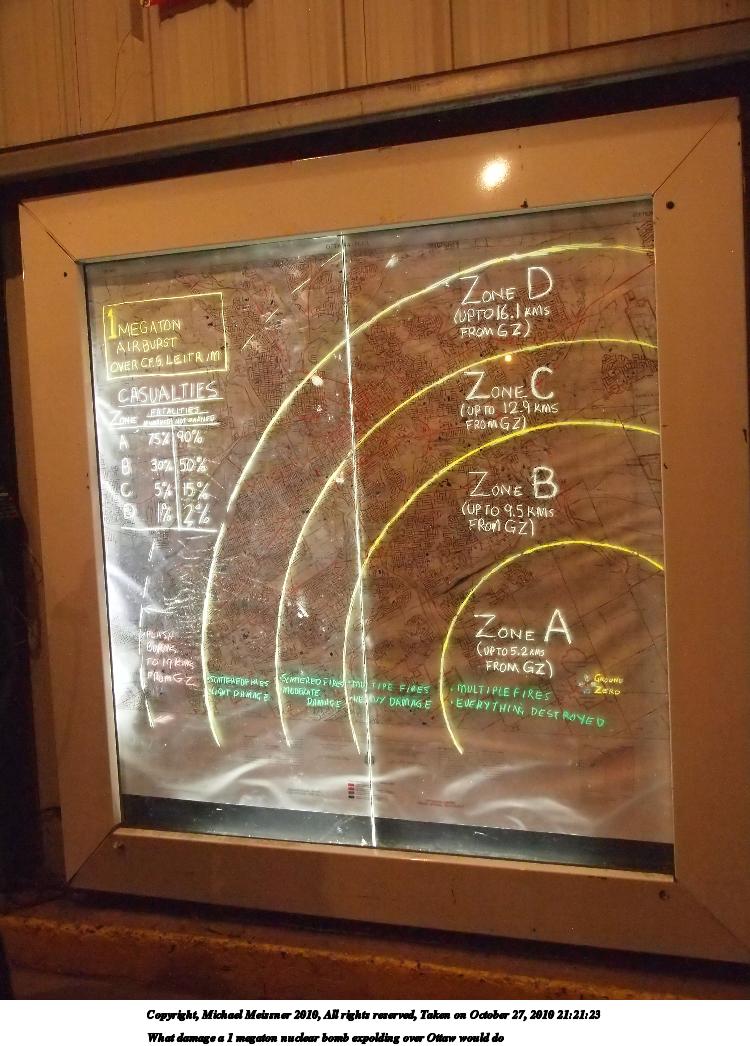 1 MEGATON
AIRBURST
OVER C.F.S. LEITRIM
CASUALTIES
ZONE FATALITIES
WARNED NOT WARNED
A 75% 90%
B 30% 50%
C 5% 15%
D 1% 2%
ZONE D
(UP TO 16.1 KMS
FROM GZ)
ZONE C
(UP TO 12.9 KMS
FROM GZ)
ZONE B
(UP TO 9.5 KMS
FROM GZ)
ZONE A
(UP TO 5.2 KMS
FROM GZ)
GROUND
ZERO
FLASH
BURNS
TO 19 KMS
FROM GZ
SCATTERED FIRES
LIGHT DAMAGE
SCATTERED FIRES
MODERATE
DAMAGE
• MULTIPE FIRES
• HEAVY DAMAGE
• MULTIPLE FIRES
• EVERYTHING DESTROYED
Copyright, Michael Meissner 2010, All rights reserved, Taken on October 27, 2010 21:21:23
What damage a 1 megaton nuclear bomb expolding over Ottaw would do